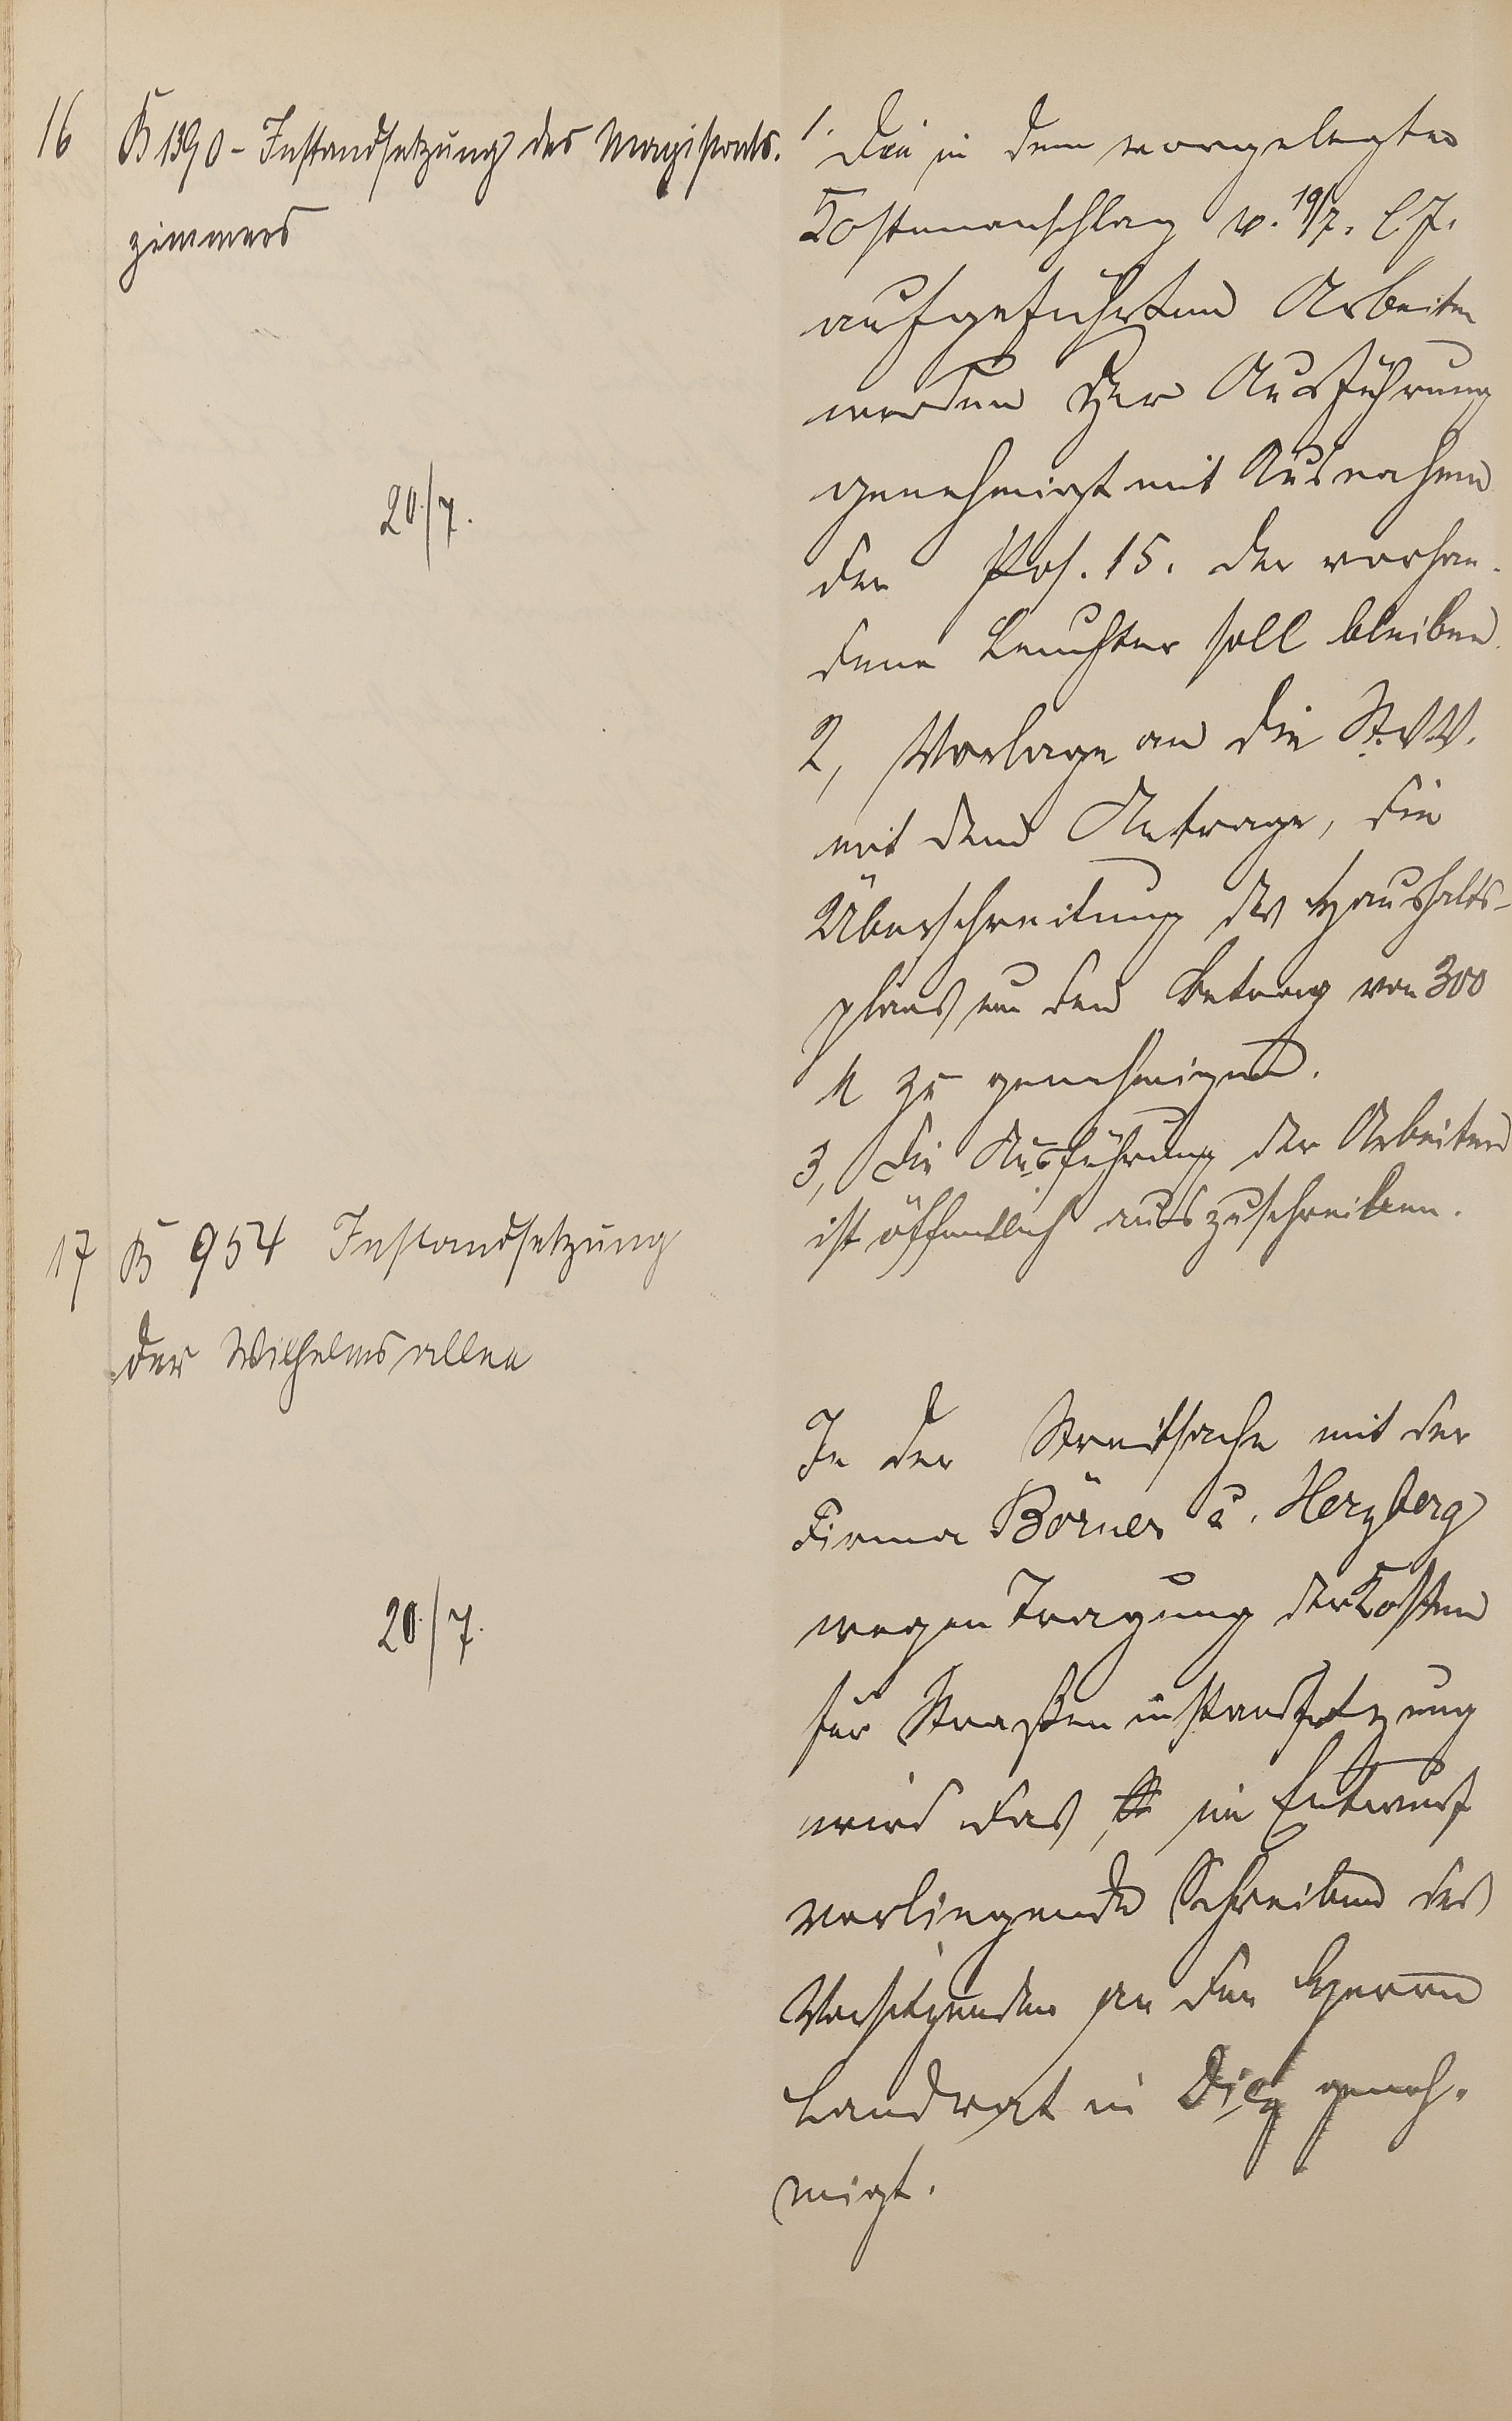 16 B 1390 - Instandsetzung des Magistrats-
zimmers
20./7.
1. Die in dem vorgelegten
Kostenanschlag v. 19/7. l J.
aufgeführten Arbeiten
werden zur Ausführung
genehmigt mit Ausnahme
der Pos. 15. der vorhan-
dene Leuchter soll bleiben.
2, Vorlage an die St.V.V.
mit dem Antrage, die
Überschreitung des Haushalts-
plans um den Betrag von 300
M zu genehmigen.
3, Die Ausführung der Arbeiten
ist öffentlich auszuschreiben.
17 B 954 Instandsetzung
der Wilhelmsallee
20./7.
In der Streitsache mit der
Firma Börner u. Herzberg
wegen Tragung der Kosten
für Straßeninstandsetzung
wird das, im Entwurf
vorliegende Schreiben des
Vorsitzenden an den Herrn
Landrat in Diez geneh-
migt.